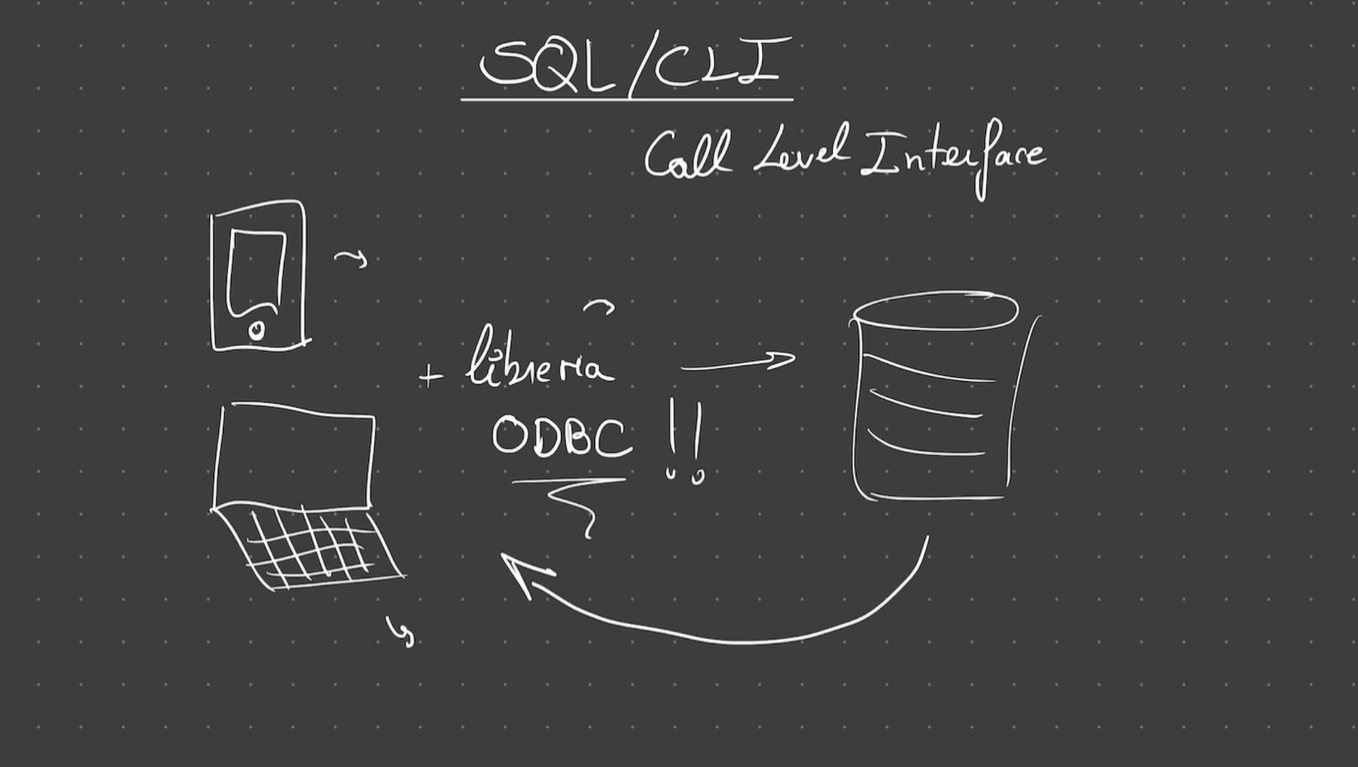 SQL/CLI
Call Level Interface
+ libreria
ODBC !!